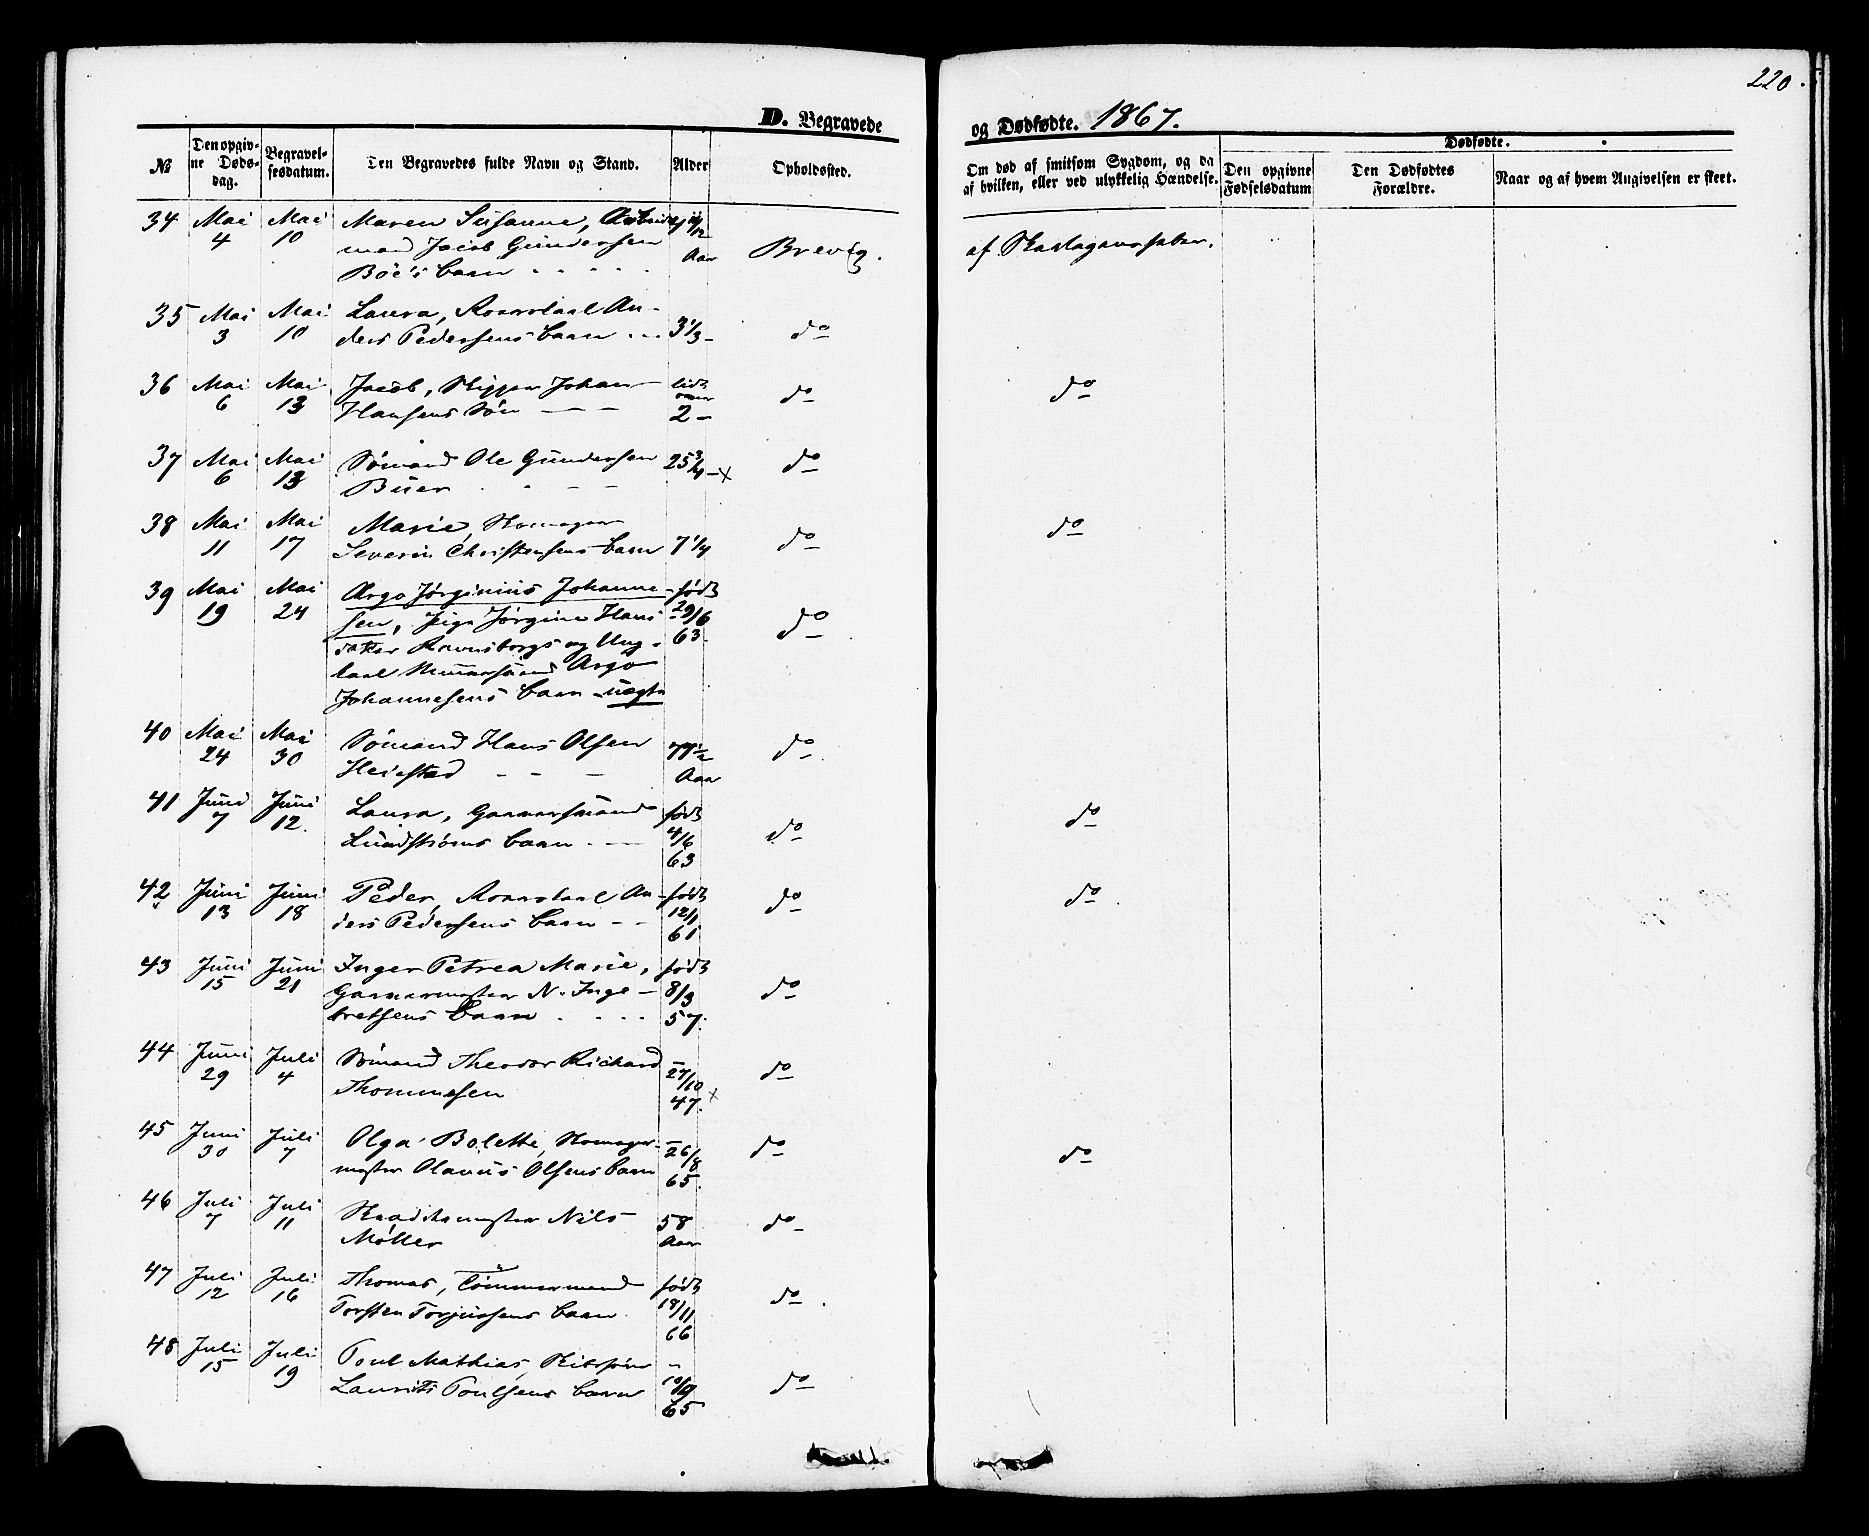 220.
D. Begravede
og Dødfødte. 1867.
№
Den opgiv-
ne Døds-
dag.
Begravel-
sesdatum.
Den Begravedes fulde Navn og Stand.
Alder
Opholdssted.
Om død af smitsom Sygdom, og da
af hvilken, eller ved ulykkelig Hændelse.
Dødfødte.
Den opgivne
Fødselsdatum
Den Dødfødtes
Forældre.
Naar og af hvem Angivelsen er skeet.
34 Mai 4 Mai 10 Maren Susanne,
mand Jacob Gundersen
Böe's barn Aar Brevig. af Skarlagensfeber.
35 Mai 3 Mai 10 Laura, An-
ders Pedersens barn 3 1/3 do
36 Mai 6 Mai 13 Jacob, Skipper Johan
Hansens Søn lidt over 2 do do
37 Mai 6 Mai 13 Sømand Ole Gundersen
Büer 25 3/4 x do
38 Mai 11 Mai 17 Marie,
Severin Christensens barn 7 1/4 do do
39 Mai 19 Mai 24 Argo Jørginius Johanne-
sen, Pige Jørgine Hans
datter Ravnsborgs og Ung-
karl Argo
Johannesens barn uægte født 29/6 63. do
40 Mai 24 Mai 30 Sømand Hans Olsen
Heistad 77 1/2 Aar do
41 Juni 7 Juni 12. Laura, Garversvend
Lundstrøms barn født 4/6 63 do do
42 Juni 13 Juni 18 Peder, An-
ders Pedersens barn født 12/1 61 do do
43 Juni 15 Juni 21 Inger Petrea Marie,
Garvermester N. Inge-
bretsens barn født 8/3 57. do
44 Juni 29 Juli 4 Sømand Theodor Richard
Thommesen 27/10 47. x do
45 Juni 30 Juli 7 Olga Bolette, Skomager-
mester Olaves Olsens barn 26/8 65. do do
46 Juli 7 Juli 11 Skræddermester Nils
Møller 58 Aar do
47 Juli 12 Juli 16 Thomas, Tømmermand
Torsten Torjussens barn født 18/11 66 do
48 Juli 15 Juli 19 Poul Mathias,
Laurits Poulsens barn 10/9 65 do